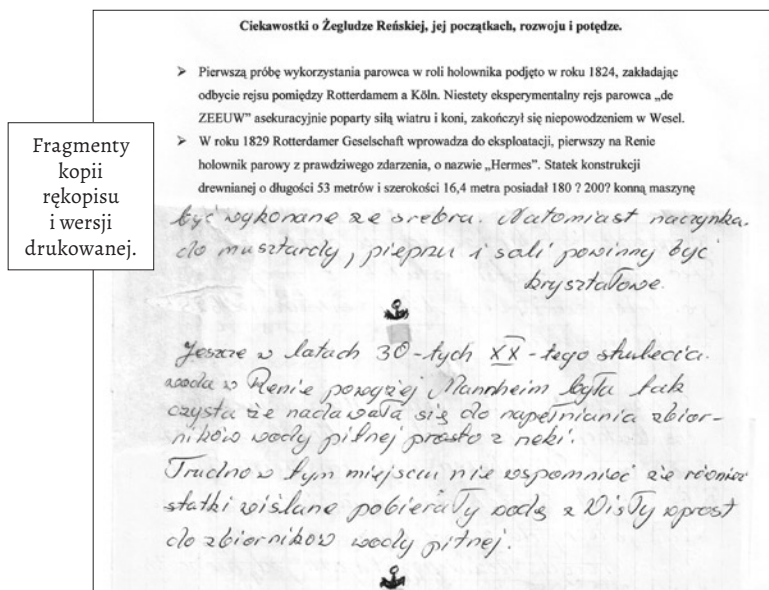 Ciekawostki o Żegludze Reńskiej, jej początkach, rozwoju i potędze.
➢ Pierwszą próbę wykorzystania parowca w roli holownika podjęto w roku 1824, zakładając
odbycie rejsu pomiędzy Rotterdamem a Köln. Niestety eksperymentalny rejs parowca „de
ZEEUW” asekuracyjnie poparty siłą wiatru i koni, zakończył się niepowodzeniem w Wesel.
➢ W roku 1829 Rotterdamer Geselschaft wprowadza do eksploatacji, pierwszy na Renie
holownik parowy z prawdziwego zdarzenia, o nazwie „Hermes”. Statek konstrukcji
drewnianej o długości 53 metrów i szerokości 16,4 metra posiadał 180 ? 200? konną maszynę
Fragmenty
kopii
rękopisu
i wersji
drukowanej.
być wykonane ze srebra. Natomiast naczynka
do musztardy, pieprzu i soli powinny być
kryształowe.
Jeszcze w latach 30-tych XX-tego stulecia
woda w Renie powyżej Mannheim była tak
czysta że nadawała się do napełniania zbior-
ników wody pitnej prosto z rzeki.
Trudno w tym miejscu nie wspomnieć że również
statki wiślane pobierały wodę z Wisły wprost
do zbiorników wody pitnej.